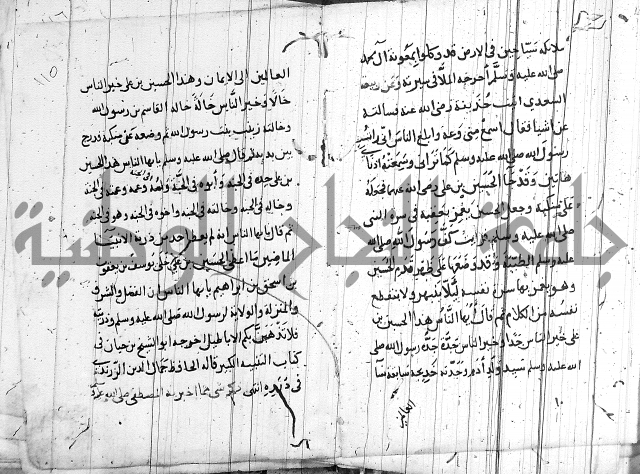 ملائكة سياحين في الارض قد وكلوا بمعونة آل محمد
صلى الله عليه وسلم اخرجه الملا في سيرته وعن ربيعة
السعدي اتيت حذيفة رضي الله عنه فسالته
عن اشيا فقال اسمع مني وعه وابلغ الناس اني
رسول الله صلى الله عليه وسلم كما تراني وسمعته اذناي
هاتين وقد جا الحسين بن علي رضي الله عنهما فجعله
على منكبه وجعل الحسين يغمز بعقبه في سرة النبي
صلى الله عليه وسلم كف رسول الله صلى الله
عليه وسلم الطيبة وقد وضعها على ظهر قدم الحسين
وهو يغمز بها سن نفسه ليلا ينبهر ولا ينقطع
نفسه من الكلام ثم قال ايها الناس هذا الحسين بن
علي خير الناس جدا وخير الناس جدة جده رسول الله صلى
الله عليه وسلم سيد ولد آدم وجدته خديجة سابقة نسآ
العالمين
١٠
العالمين الى الايمان وهذا الحسين بن علي خير الناس
خالا وخير الناس خالة خاله القاسم بن رسول الله
وخالته زينب بنت رسول الله ثم وضعه عن منكبه ودرج
بين يديه ثم قال صلى الله عليه وسلم يايها الناس هذا الحسين
بن علي جده في الجنة وابوه في الجنة وامه وعمه وعمته في الجنة
وخاله في الجنة وخالته في الجنة واخوه في الجنة وهو في الجنة
ثم قال يايها الناس انه لم يعط احد من ذرية الانبيآ
الماضين ما اعطي الحسين بن علي خلا يوسف بن يعقوب
بن اسحق بن ابراهيم يايها الناس ان الفضل والشرف
والمنزلة والولاية لرسول الله صلى الله عليه وسلم وذريته
فلا تذهبن بكم الاباطيل اخرجه ابو الشيخ بن حبان في
كتاب التنبيه الكبير قاله الحافظ جمال الدين الزرندي
في درره انتهى مما اخبر به المصطفى صلى الله عليه وسلم
جامعة النجاح الوطنية